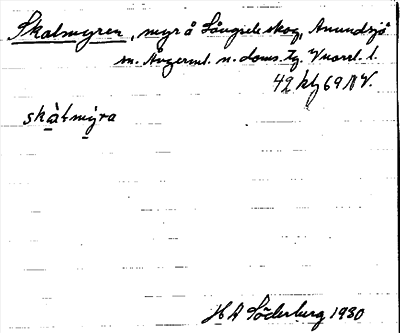 Skalmyren, myr å Långsele skog, Anundsjö
sn. Ångerml. n. doms. tg. Vnorrl. l.
42 ktj 69 NV.
skàlmýra
H A Söderberg 1930